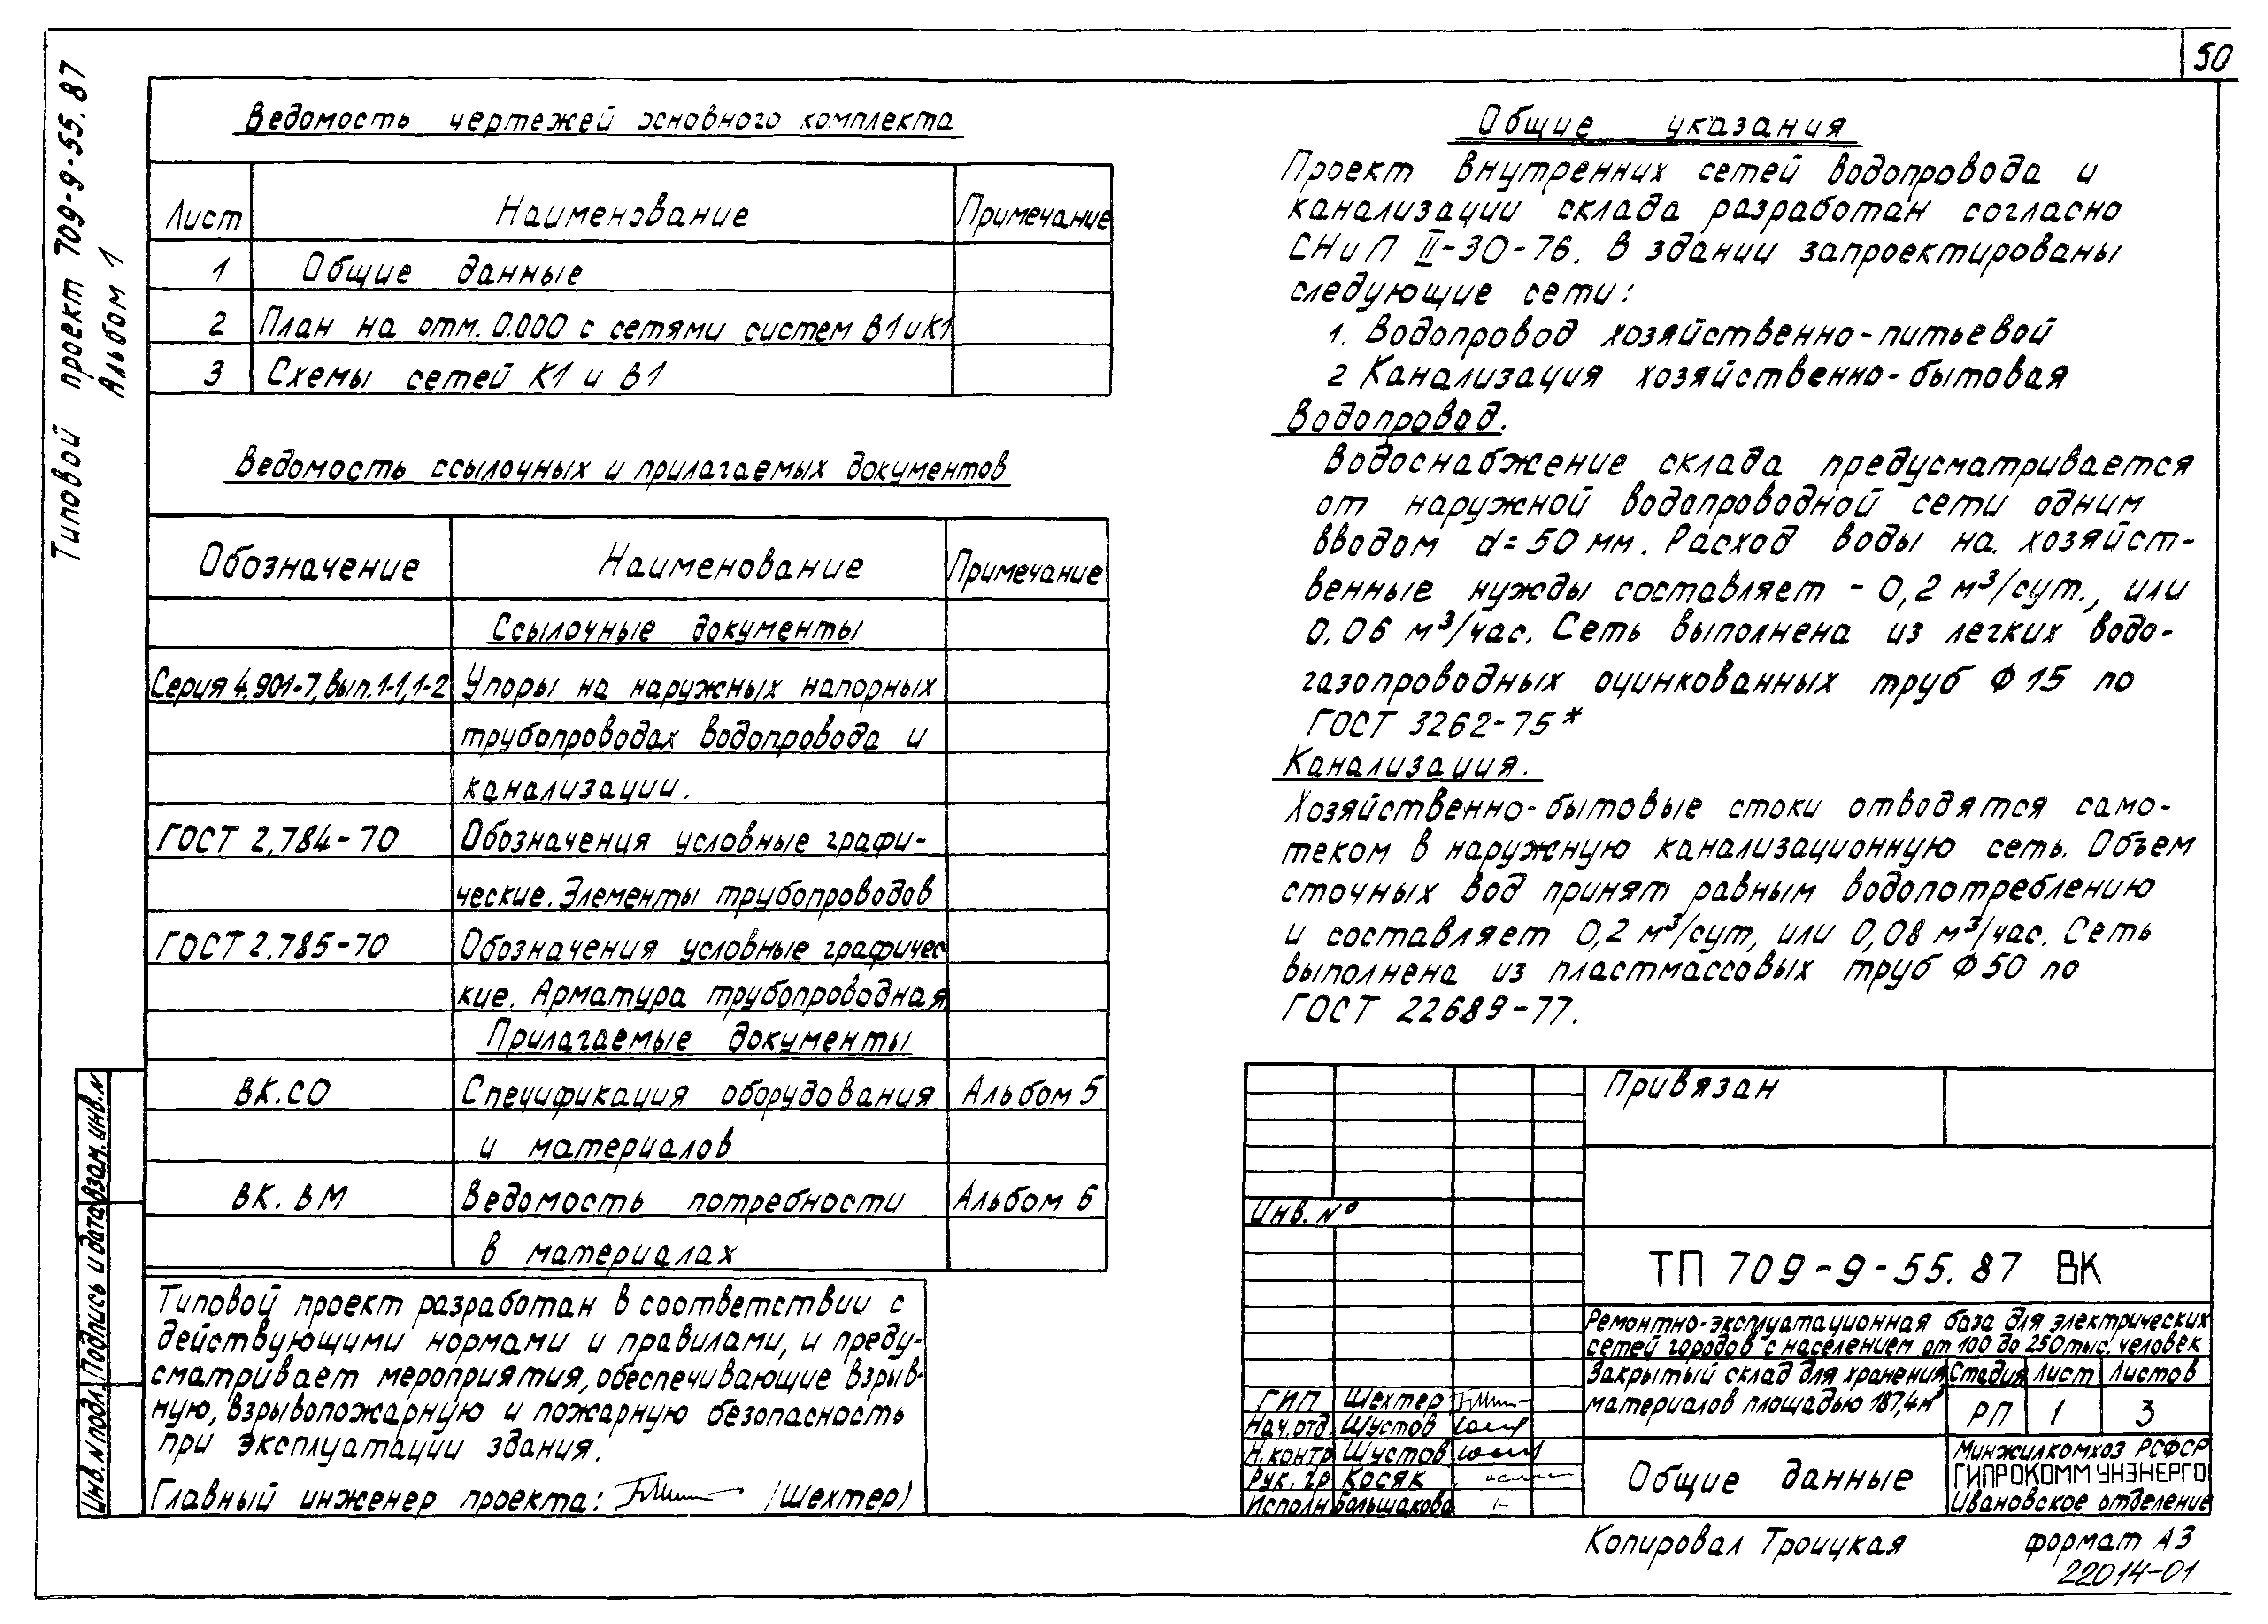 50
Типовой проект 709-9-55.87
Альбом 1
Ведомость чертежей основного комплекта
Лист Наименование Примечание
1 Общие данные
2 План на отм. 0.000 с сетями систем В1 и К1
3 Схемы сетей К1 и В1
Ведомость ссылочных и прилагаемых документов
Обозначение Наименование Примечание
Ссылочные документы
Серия 4.901-7, вып.1-1,1-2 Упоры на наружных напорных
трубопроводах водопровода и
канализации.
ГОСТ 2.784-70 Обозначения условные графи-
ческие. Элементы трубопроводов
ГОСТ 2.785-70 Обозначения условные графичес-
кие. Арматура трубопроводная.
Прилагаемые документы
ВК.СО Спецификация оборудования Альбом 5
и материалов
ВК. ВМ Ведомость потребности Альбом 6
в материалах
Типовой проект разработан в соответствии с
действующими нормами и правилами, и преду-
сматривает мероприятия, обеспечивающие взрыв-
ную, взрывопожарную и пожарную безопасность
при эксплуатации здания.
Главный инженер проекта: (Шехтер)
Взам. инв. №
Подпись и дата
Инв. № подл.
Общие указания
Проект внутренних сетей водопровода и
канализации склада разработан согласно
СНиП II-30-76. В здании запроектированы
следующие сети:
1. Водопровод хозяйственно-питьевой
2 Канализация хозяйственно-бытовая
Водопровод.
Водоснабжение склада предусматривается
от наружной водопроводной сети одним
вводом d=50 мм. Расход воды на хозяйст-
венные нужды составляет - 0,2 м³/сут., или
0.06 м³/час. Сеть выполнена из легких водо-
газопроводных оцинкованных труб Ф 15 по
ГОСТ 3262-75*
Канализация.
Хозяйственно-бытовые стоки отводятся само-
теком в наружную канализационную сеть. Объем
сточных вод принят равным водопотреблению
и составляет 0,2 м³/сут, или 0,08 м³/час. Сеть
выполнена из пластмассовых труб Ф 50 по
ГОСТ 22689-77.
Привязан
Инв. №
ТП 709-9-55.87 ВК
Ремонтно-эксплуатационная база для электрических
сетей городов с населением от 100 до 250 тыс. человек
Закрытый склад для хранения
материалов площадью 187,4м²
Стадия Лист Листов
РП 1 3
ГИП Шехтер
Нач.отд. Шустов
Н.контр Шустов
Рук. гр Косяк
Исполн Большакова
Общие данные
Минжилкомхоз РСФСР
ГИПРОКОММУНЭНЕРГО
Ивановское отделение
Копировал Троицкая формат А3
22014-01